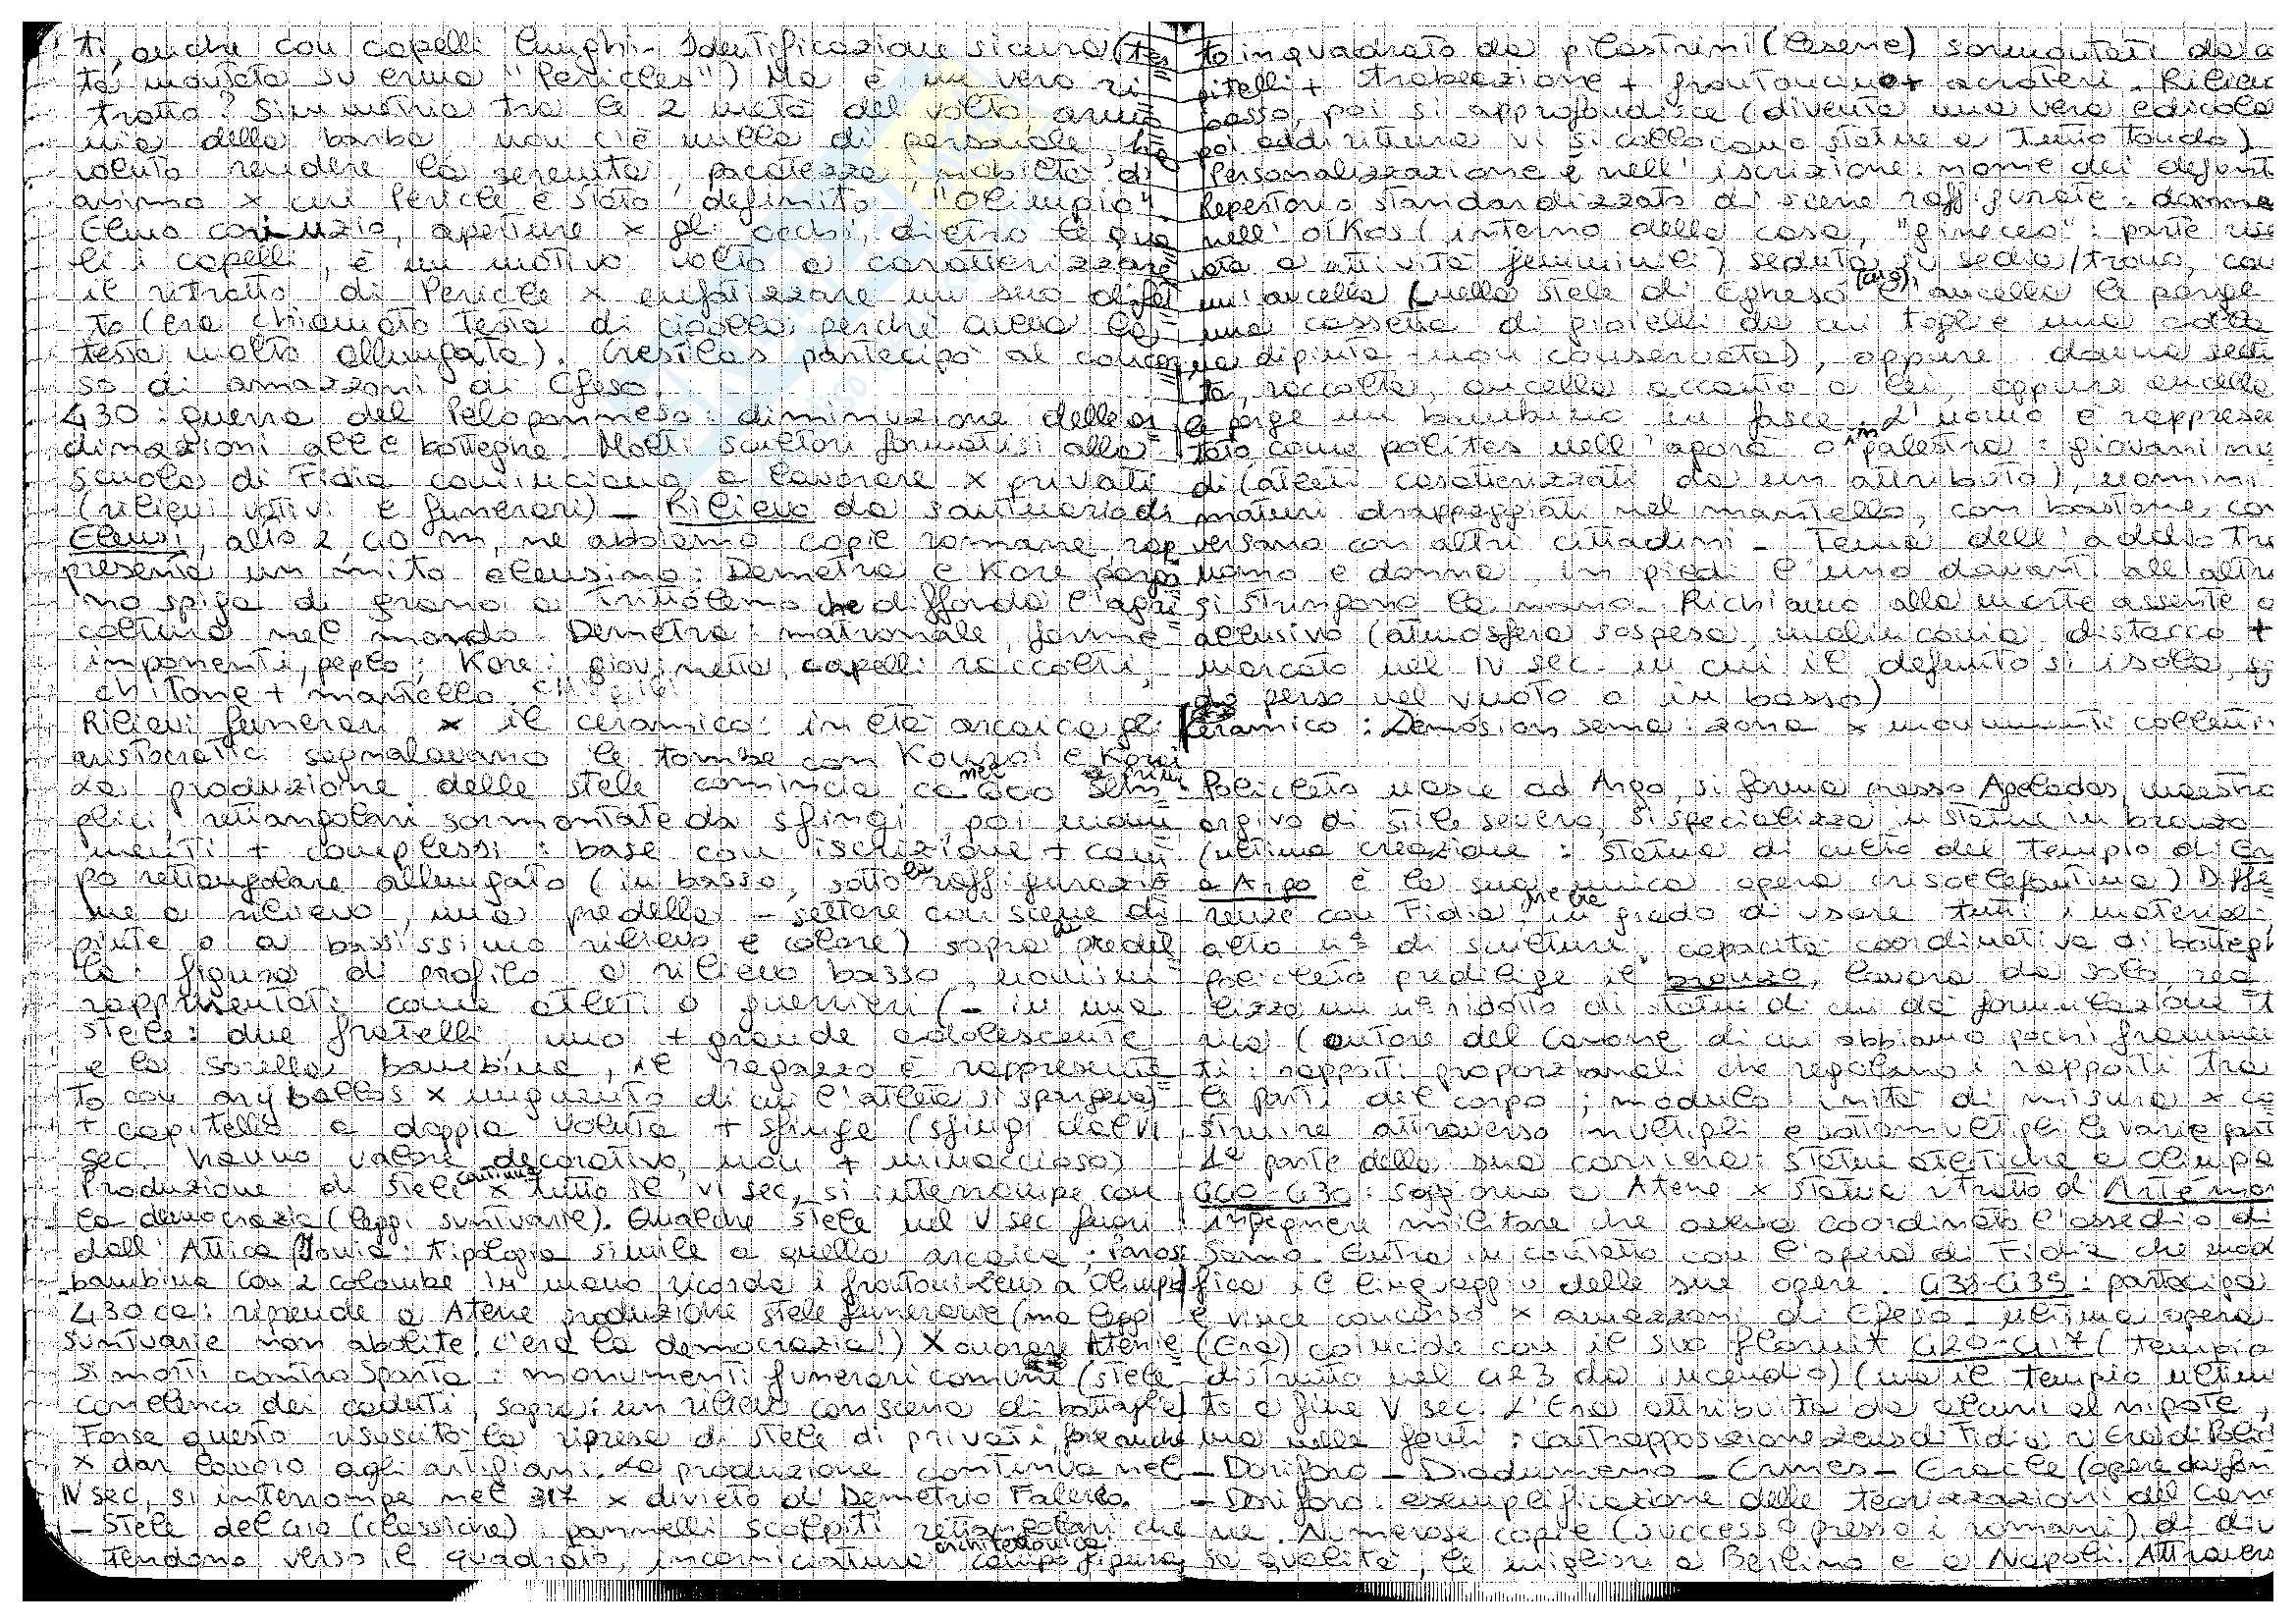 ti, anche con capelli lunghi. Identificazione sicura (tes
ta montata su erma "Pericles") Ma è un vero ri
tratto? Simmetria tra le 2 metà del volto, armo
nia della barba, non c'è nulla di personale, ha
voluto rendere la serenità, pacatezza, nobiltà di
animo x cui Pericle è stato definito "Olimpio".
Elmo corinzio, aperture x gli occhi, dietro le qua
li i capelli, è un motivo volto a caratterizzare
il ritratto di Pericle x enfatizzare un suo difet
to (era chiamato testa di cipolla perchè aveva la
testa molto allungata). Cresilas partecipò al concor
so di amazzoni di Efeso.
430: guerra del Peloponneso: diminuzione delle or
dinazioni alle botteghe. Molti scultori formatisi alla
scuola di Fidia cominciano a lavorare x privati
(rilievi votivi e funerari)_ Rilievo da santuario di
Eleusi, alto 2,40 m, ne abbiamo copie romane rap
presenta un mito eleusino: Demetra e Kore porgo
no spiga di grano a Trittolemo che diffonda l'agri
coltura nel mondo. Demetra: matronale, forme
imponenti, peplo; Kore: giovinetta, capelli raccolti,
chitone + mantello.
Rilievi funerari x il ceramico: in età arcaica gli
aristocratici segnalavano le tombe con Kouroi e Korai
La produzione delle stele comincia nel 600 sem
plici, rettangolari sormontate da sfingi, poi monu
menti + complessi: base con iscrizione + cam
po rettangolare allungato (in basso, sotto la raffigurazio
ne a rilievo, una predella - settore con scene di
pinte o a bassissimo rilievo e colore) sopra la predel
la: figura di profilo a rilievo basso, uomini
rappresentati come atleti o guerrieri (- in una
stele: due fratelli, uno + grande adolescente
e la sorella bambina, il ragazzo è rappresenta
to con aryballos x unguento di cui l'atleta si spargeva)
+ capitello a doppia voluta + sfinge (sfingi del VI
sec. hanno valore decorativo, non + minaccioso)
Produzione di stele continua x tutto il VI sec, si interrompe con
la democrazia (leggi suntuarie). Qualche stele nel V sec fuori
dall'Attica (Ionia: tipologia simile a quella arcaica; Paros:
bambina con 2 colombe in mano ricorda i frontoni Zeus a Olimpia)
430 ca: riprende a Atene produzione stele funerarie (ma leggi
suntuarie non abolite, c'era la democrazia!) X onorare Atenie
si morti contro Sparta: monumenti funerari comuni (stele
con elenco dei caduti, sopra: un rilievo con scena di battaglia)
Forse questo risuscitò la ripresa di stele di privati, forse anche
x dar lavoro agli artigiani. La produzione continua nel
IV sec, si interrompe nel 317 x divieto di Demetrio Falereo.
- Stele del 410 (classiche): pannelli scolpiti rettangolari che
tendono verso il quadrato, incorniciatura architettonica campo figura
to inquadrato da pilastrini (lesene) sormontati da ca
pitelli + trabeazione + frontoncino + acroteri. Rilievo
basso, poi si approfondisce (diventa una vera edicola
poi addirittura vi si collocano statue a tutto tondo)
Personalizzazione è nell'iscrizione: nome dei defunti
Repertorio standardizzato di scene raffigurate: donna
nell'oikos (interno della casa, "gineceo": parte riser
vata a attività femminili) seduta su sedia/trono, con
un'ancella (nella stele di Egheso l'ancella le porge
una cassetta di gioielli da cui toglie una colla
na dipinta - non conservata), oppure donna sedu
ta, raccolta, ancella accanto a lei, oppure ancella
le porge un bambino in fasce. L'uomo è rappresen
tato come polites nell'agorà o in palestra: giovani nu
di (atleti caratterizzati da un attributo), uomini
maturi drappeggiati nel mantello, con bastone, con
versano con altri cittadini - Tema dell'addio tra
uomo e donna, in piedi l'uno davanti all'altro
si stringono la mano. Richiamo alla morte assente o
allusivo (atmosfera sospesa, malinconia, distacco +
marcato nel IV sec. in cui il defunto si isola, sguar
do perso nel vuoto o in basso)
Keramico: Demósion sema: zona x monumenti collettivi
Policleto nasce ad Argo, si forma presso Ageladas, maestro
argivo di stile severo, si specializza in statue in bronzo
(ultima creazione: statua di culto del tempio di Era
a Argo è la sua unica opera crisoelefantina) Diffe
renze con Fidia: in grado di usare tutti i materiali
alto n° di sculture, capacità coordinativa di bottega
policleto predilige il bronzo, lavora da solo, rea
lizza un n° ridotto di statue di cui dà formulazione teo
rica (autore del Canone di cui abbiamo pochi frammen
ti: rapporti proporzionali che regolano i rapporti tra
le parti del corpo; modulo: unità di misura x co
struire attraverso multipli e sottomultipli le varie parti
1ª parte della sua carriera: statue atletiche a Olimpia
440-430: soggiorno a Atene x statua ritratto di Artemon
ingegnere militare che aveva coordinato l'assedio di
Samo. Entra in contatto con l'opera di Fidia che modi
fica il linguaggio delle sue opere. 438-435: partecipa
e vince concorso x amazzoni di Efeso_ ultima opera
(Era) coincide con il suo floruit 420-417 (tempio
distrutto nel 423 da incendio) (ma il tempio ultima
to a fine V sec. L'Era attribuita da alcuni al nipote,
ma nelle fonti: contrapposizione zeus di Fidia v Era di Policl
- Doriforo - Diadumeno - Ermes - Eracle (opere da fon
- Doriforo: esemplificazione delle teorizzazioni del Cano
ne. Numerose copie (successo presso i romani) di diver
se qualità, le migliori a Berlino e a Napoli. Attravers